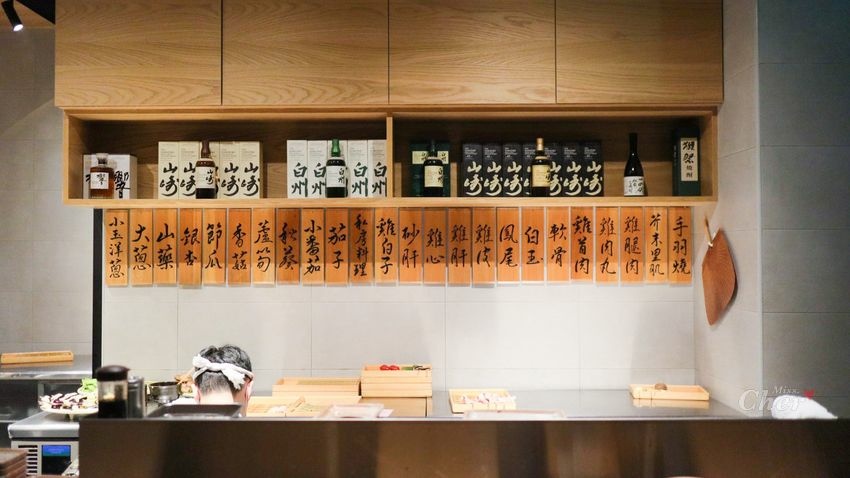 響
山崎
山崎
白州
白州
白州
山崎
山崎
山崎
山崎
獺祭
焼酎
小玉洋蔥
大蔥
山藥
銀杏
節瓜
香菇
蘆筍
秋葵
小番茄
茄子
私房料理
雞白子
砂肝
雞心
雞肝
雞皮
鳳尾
白玉
軟骨
雞首肉
雞肉丸
雞腿肉
芥末里肌
手羽燒
Miss.
Cher